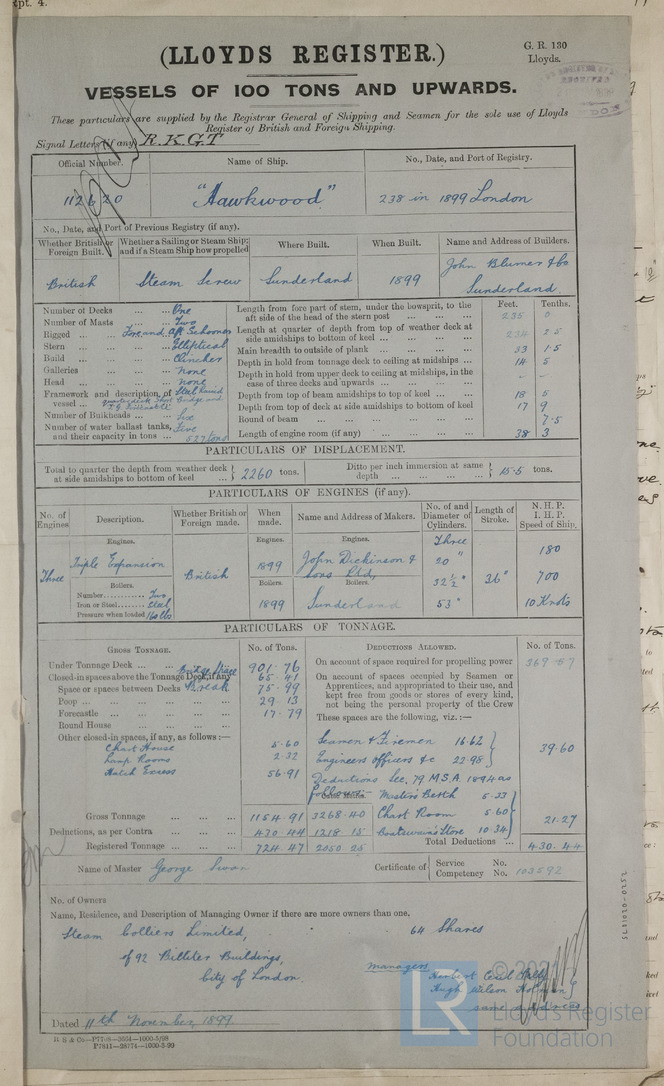 pt. 4.
(LLOYDS REGISTER.)
G. R. 130
Lloyds.
VESSELS OF 100 TONS AND UPWARDS.
These particulars are supplied by the Registrar General of Shipping and Seamen for the sole use of Lloyds
Register of British and Foreign Shipping.
Signal Letters (if any) R.K.G.T
Official Number. Name of Ship. No., Date, and Port of Registry.
112620 "Hawkwood" 238 in 1899 London
No., Date, and Port of Previous Registry (if any).
Whether British or Foreign Built. Whether a Sailing or Steam Ship; and if a Steam Ship how propelled Where Built. When Built. Name and Address of Builders.
British Steam Screw Sunderland 1899 John Blumer & Co Sunderland
Feet. Tenths.
Number of Decks ... ... One
Number of Masts ... ... Two
Rigged ... Fore and Aft Schooner
Stern ... ... Elliptical
Build ... ... Clincher
Galleries ... ... None
Head ... ... None
Framework and description of vessel ... Steel
Number of Bulkheads ... ... Six
Number of water ballast tanks, and their capacity in tons ... Five 527 tons
Length from fore part of stem, under the bowsprit, to the aft side of the head of the stern post ... 235 0
Length at quarter of depth from top of weather deck at side amidships to bottom of keel ... 234 2.5
Main breadth to outside of plank ... 33 1.5
Depth in hold from tonnage deck to ceiling at midships ... 14 5
Depth in hold from upper deck to ceiling at midships, in the case of three decks and upwards ... - -
Depth from top of beam amidships to top of keel ... 18 5
Depth from top of deck at side amidships to bottom of keel 17 9
Round of beam ... 7.5
Length of engine room (if any) ... 38 3
PARTICULARS OF DISPLACEMENT.
Total to quarter the depth from weather deck at side amidships to bottom of keel ... 2260 tons. Ditto per inch immersion at same depth ... 15.5 tons.
PARTICULARS OF ENGINES (if any).
No. of Engines Description. Whether British or Foreign made. When made. Name and Address of Makers. No. of and Diameter of Cylinders. Length of Stroke. N. H. P. I. H. P. Speed of Ship.
Engines. Engines. Engines. Three
Triple Expansion 1899 John Dickinson & Sons Ltd, 20" 180
Three British 32½" 36" 700
Boilers. Boilers. Boilers.
Number............ Two
Iron or Steel........ Steel 1899 Sunderland 53" 10 Knots
Pressure when loaded 160 lbs
PARTICULARS OF TONNAGE.
GROSS TONNAGE. No. of Tons. DEDUCTIONS ALLOWED. No. of Tons.
Under Tonnage Deck ... ... 901.76
Closed-in spaces above the Tonnage Deck, if any Bridge Space 65.41
Space or spaces between Decks Break 75.99
Poop ... ... 29.13
Forecastle ... ... 17.79
Round House ... ...
Other closed-in spaces, if any, as follows :—
Chart House 5.60
Lamp Rooms 2.32
Hatch Excess 56.91
Gross Tonnage ... ... 1154.91 3268.40
Deductions, as per Contra ... ... 430.44 1218.15
Registered Tonnage ... ... 724.47 2050.25
On account of space required for propelling power 369.57
On account of spaces occupied by Seamen or Apprentices, and appropriated to their use, and kept free from goods or stores of every kind, not being the personal property of the Crew
These spaces are the following, viz. :—
Seamen & Firemen 16.62
Engineers officers &c 22.98 39.60
Deductions Sec. 79 M.S.A. 1894 as follows:—
Master's Berth 5.33
Chart Room 5.60
Boatswain's Store 10.34 21.27
Total Deductions ... 430.44
Name of Master George Certificate of Service No. Competency No. 103592
No. of Owners
Name, Residence, and Description of Managing Owner if there are more owners than one.
Steam Colliers Limited, 64 Shares
of 92 Billiter Buildings,
City of London.
Managers Herbert Cecil
Hugh Wilson
same address
Dated 11th November 1899
© 2021
LR Lloyd's Register
Foundation